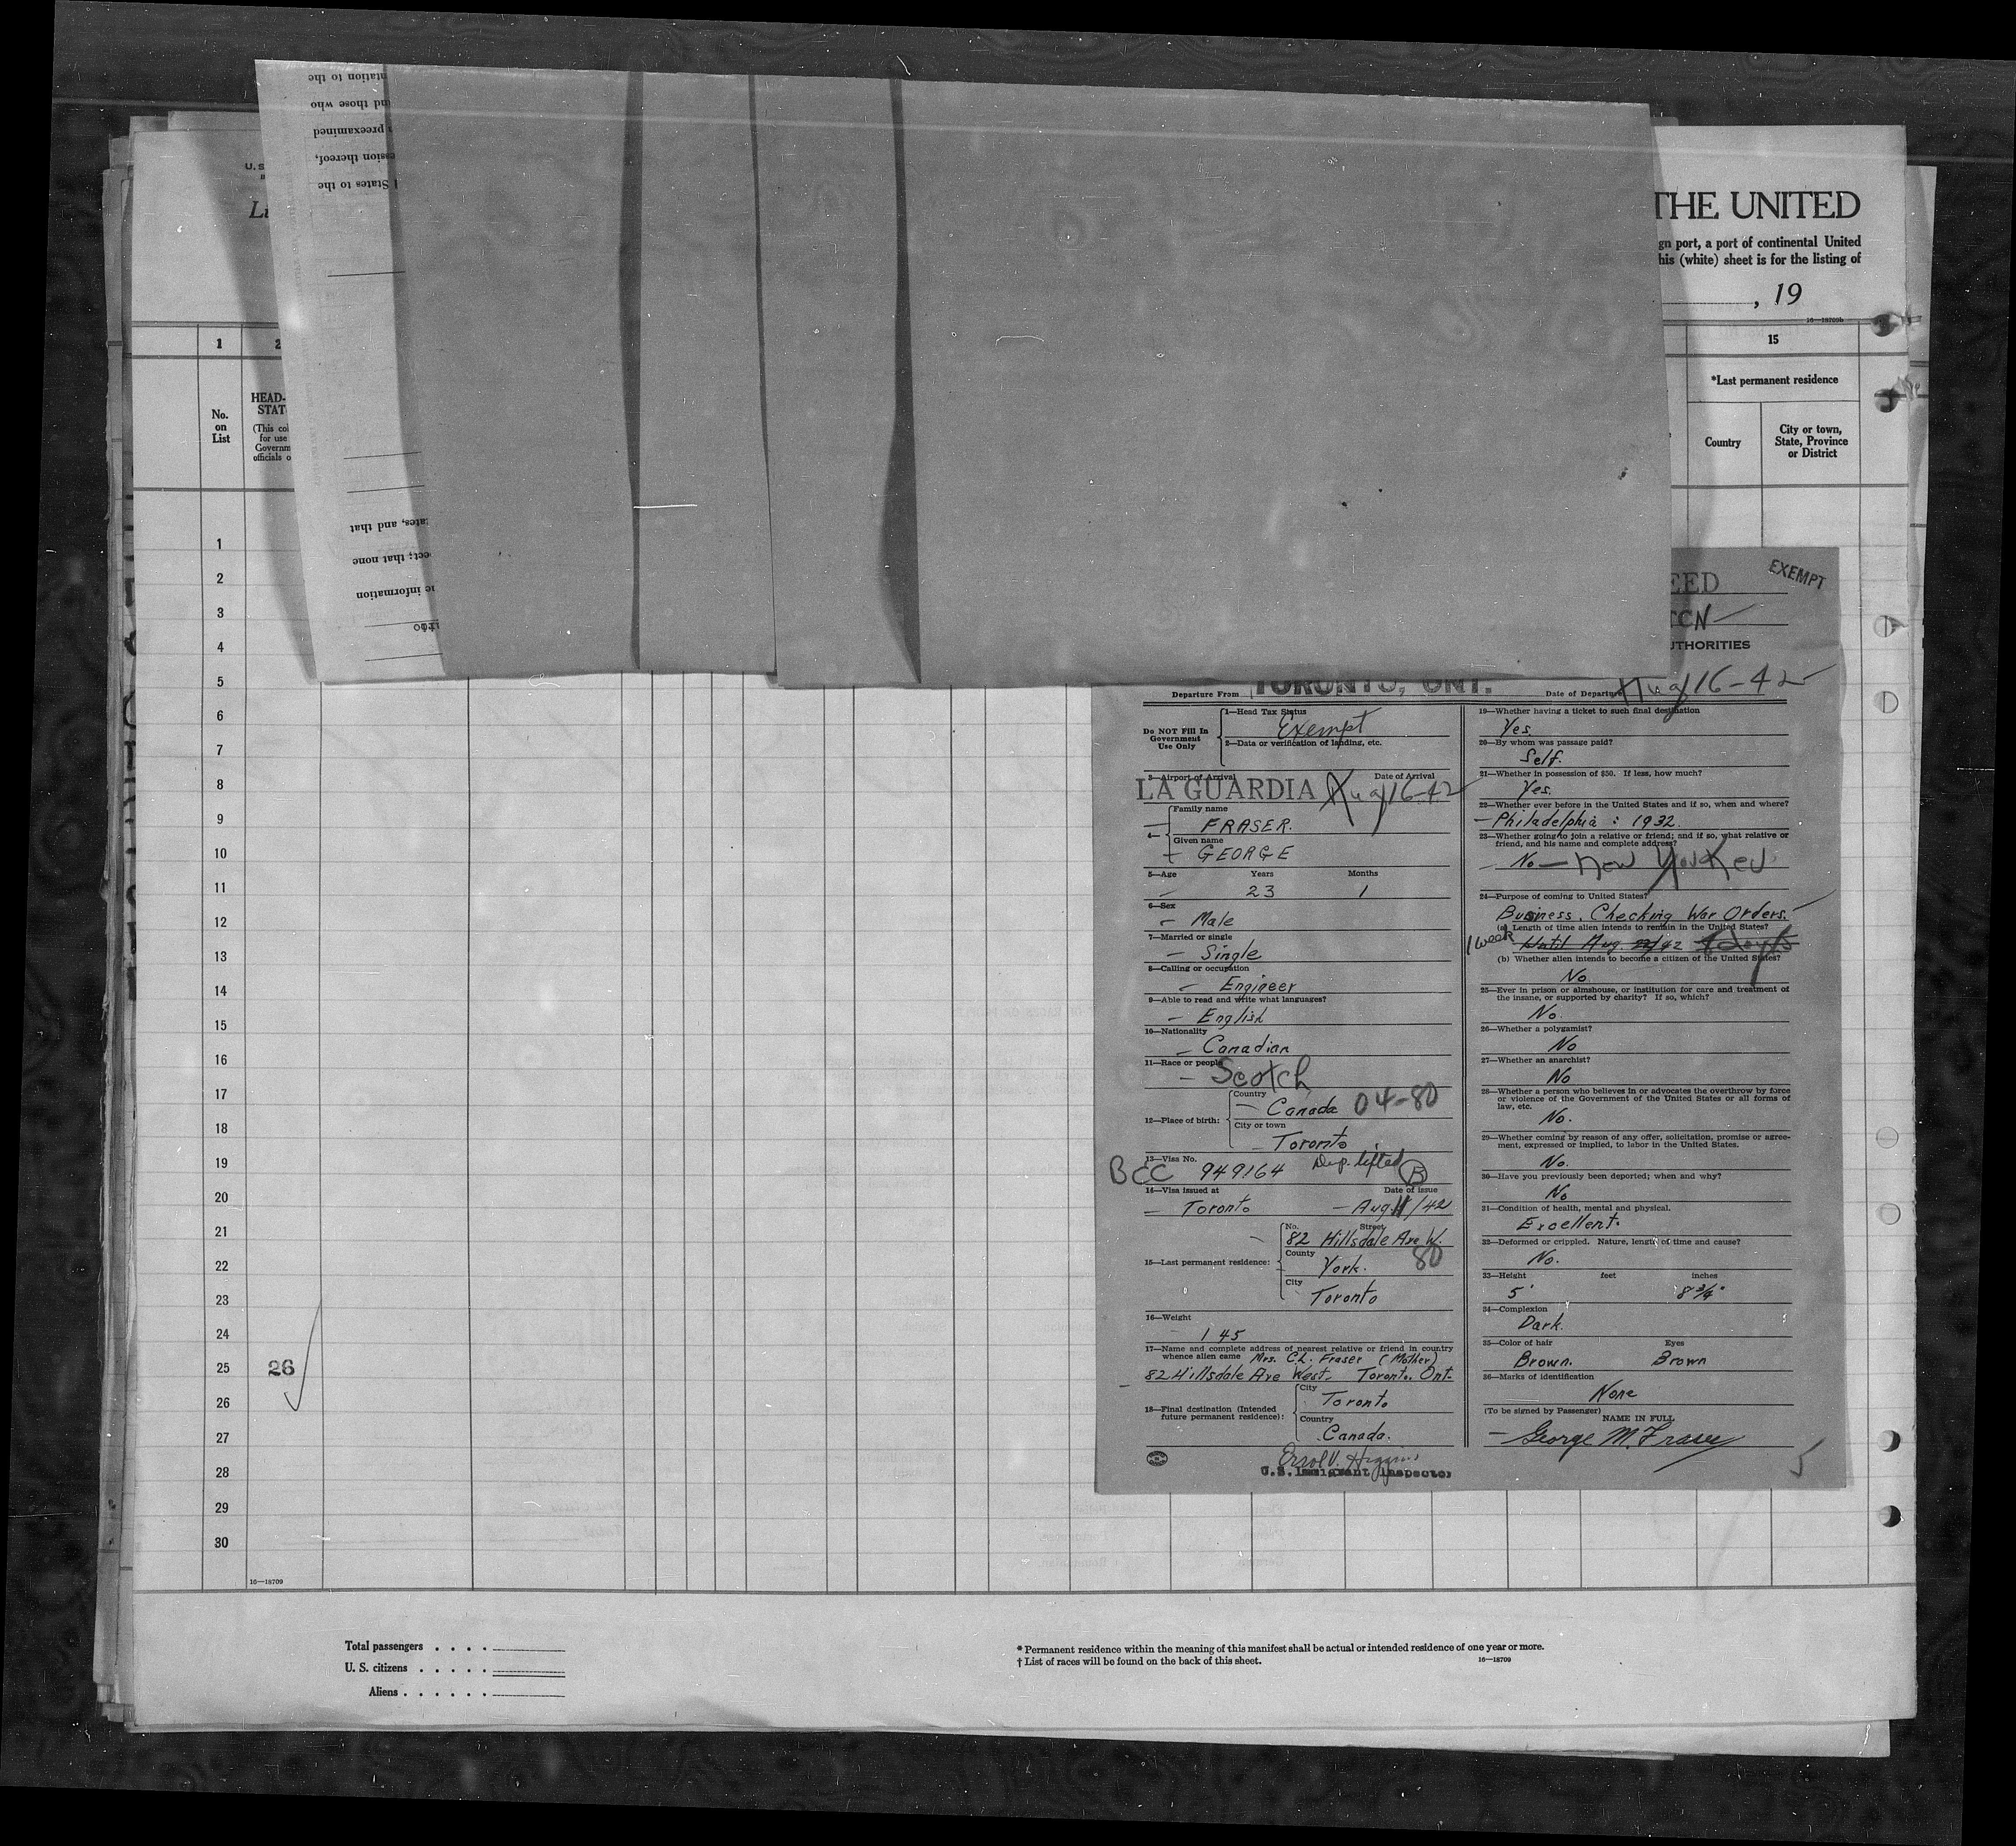 ntation to the
nd those who
preexamined
asion thereof,
States to the
ates, and that
ect; that none
he information
THE UNITED
gn port, a port of continental United
his (white) sheet is for the listing of
, 19
16—18709b
1
2
15
No.
on
List
HEAD-
STAT
(This col
for use
Governm
officials o
*Last permanent residence
Country
City or town,
State, Province
or District
1
2
3
4
5
6
7
8
9
10
11
12
13
14
15
16
17
18
19
20
21
22
23
24
25 26
26
27
28
29
30
16—18709
EED
EXEMPT
UTHORITIES
Departure From TORONTO, ONT. Date of Departure Aug 16-42
Do NOT Fill In
Government
Use Only
1—Head Tax Status
Exempt
2—Data or verification of landing, etc.
3—Airport of Arrival Date of Arrival
LA GUARDIA Aug 16-42
4—
Family name
FRASER.
Given name
GEORGE
5—Age Years Months
23 1
6—Sex
Male
7—Married or single
Single
8—Calling or occupation
Engineer
9—Able to read and write what languages?
English
10—Nationality
Canadian
11—Race or people
Scotch
12—Place of birth:
Country
Canada 04-80
City or town
Toronto
13—Visa No.
BCC 949164 Dup. lifted B
14—Visa issued at Date of issue
Toronto Aug 11/42
15—Last permanent residence:
No. Street
82 Hillsdale Ave W.
County
York. 80
City
Toronto
16—Weight
145
17—Name and complete address of nearest relative or friend in country
whence alien came Mrs. C.L. Fraser (Mother)
82 Hillsdale Ave West. Toronto. Ont.
18—Final destination (Intended
future permanent residence):
City
Toronto
Country
Canada.
Errol V. Higgins
U.S. Immigrant Inspector
19—Whether having a ticket to such final destination
Yes.
20—By whom was passage paid?
Self.
21—Whether in possession of $50. If less, how much?
Yes.
22—Whether ever before in the United States and if so, when and where?
Philadelphia : 1932
23—Whether going to join a relative or friend; and if so, what relative or
friend, and his name and complete address?
No — New Yorker
24—Purpose of coming to United States?
Business. Checking War Orders.
(a) Length of time alien intends to remain in the United States?
1 week Until Aug. 22/42
(b) Whether alien intends to become a citizen of the United States?
No
25—Ever in prison or almshouse, or institution for care and treatment of
the insane, or supported by charity? If so, which?
No.
26—Whether a polygamist?
No
27—Whether an anarchist?
No
28—Whether a person who believes in or advocates the overthrow by force
or violence of the Government of the United States or all forms of
law, etc.
No.
29—Whether coming by reason of any offer, solicitation, promise or agree-
ment, expressed or implied, to labor in the United States.
No.
30—Have you previously been deported; when and why?
No
31—Condition of health, mental and physical.
Excellent.
32—Deformed or crippled. Nature, length of time and cause?
No.
33—Height feet inches
5' 8 3/4"
34—Complexion
Dark.
35—Color of hair Eyes
Brown. Brown
36—Marks of identification
None
(To be signed by Passenger)
NAME IN FULL
George M. Fraser
5
Total passengers . . . .
U. S. citizens . . . . .
Aliens . . . . . .
* Permanent residence within the meaning of this manifest shall be actual or intended residence of one year or more.
† List of races will be found on the back of this sheet.
16—18709